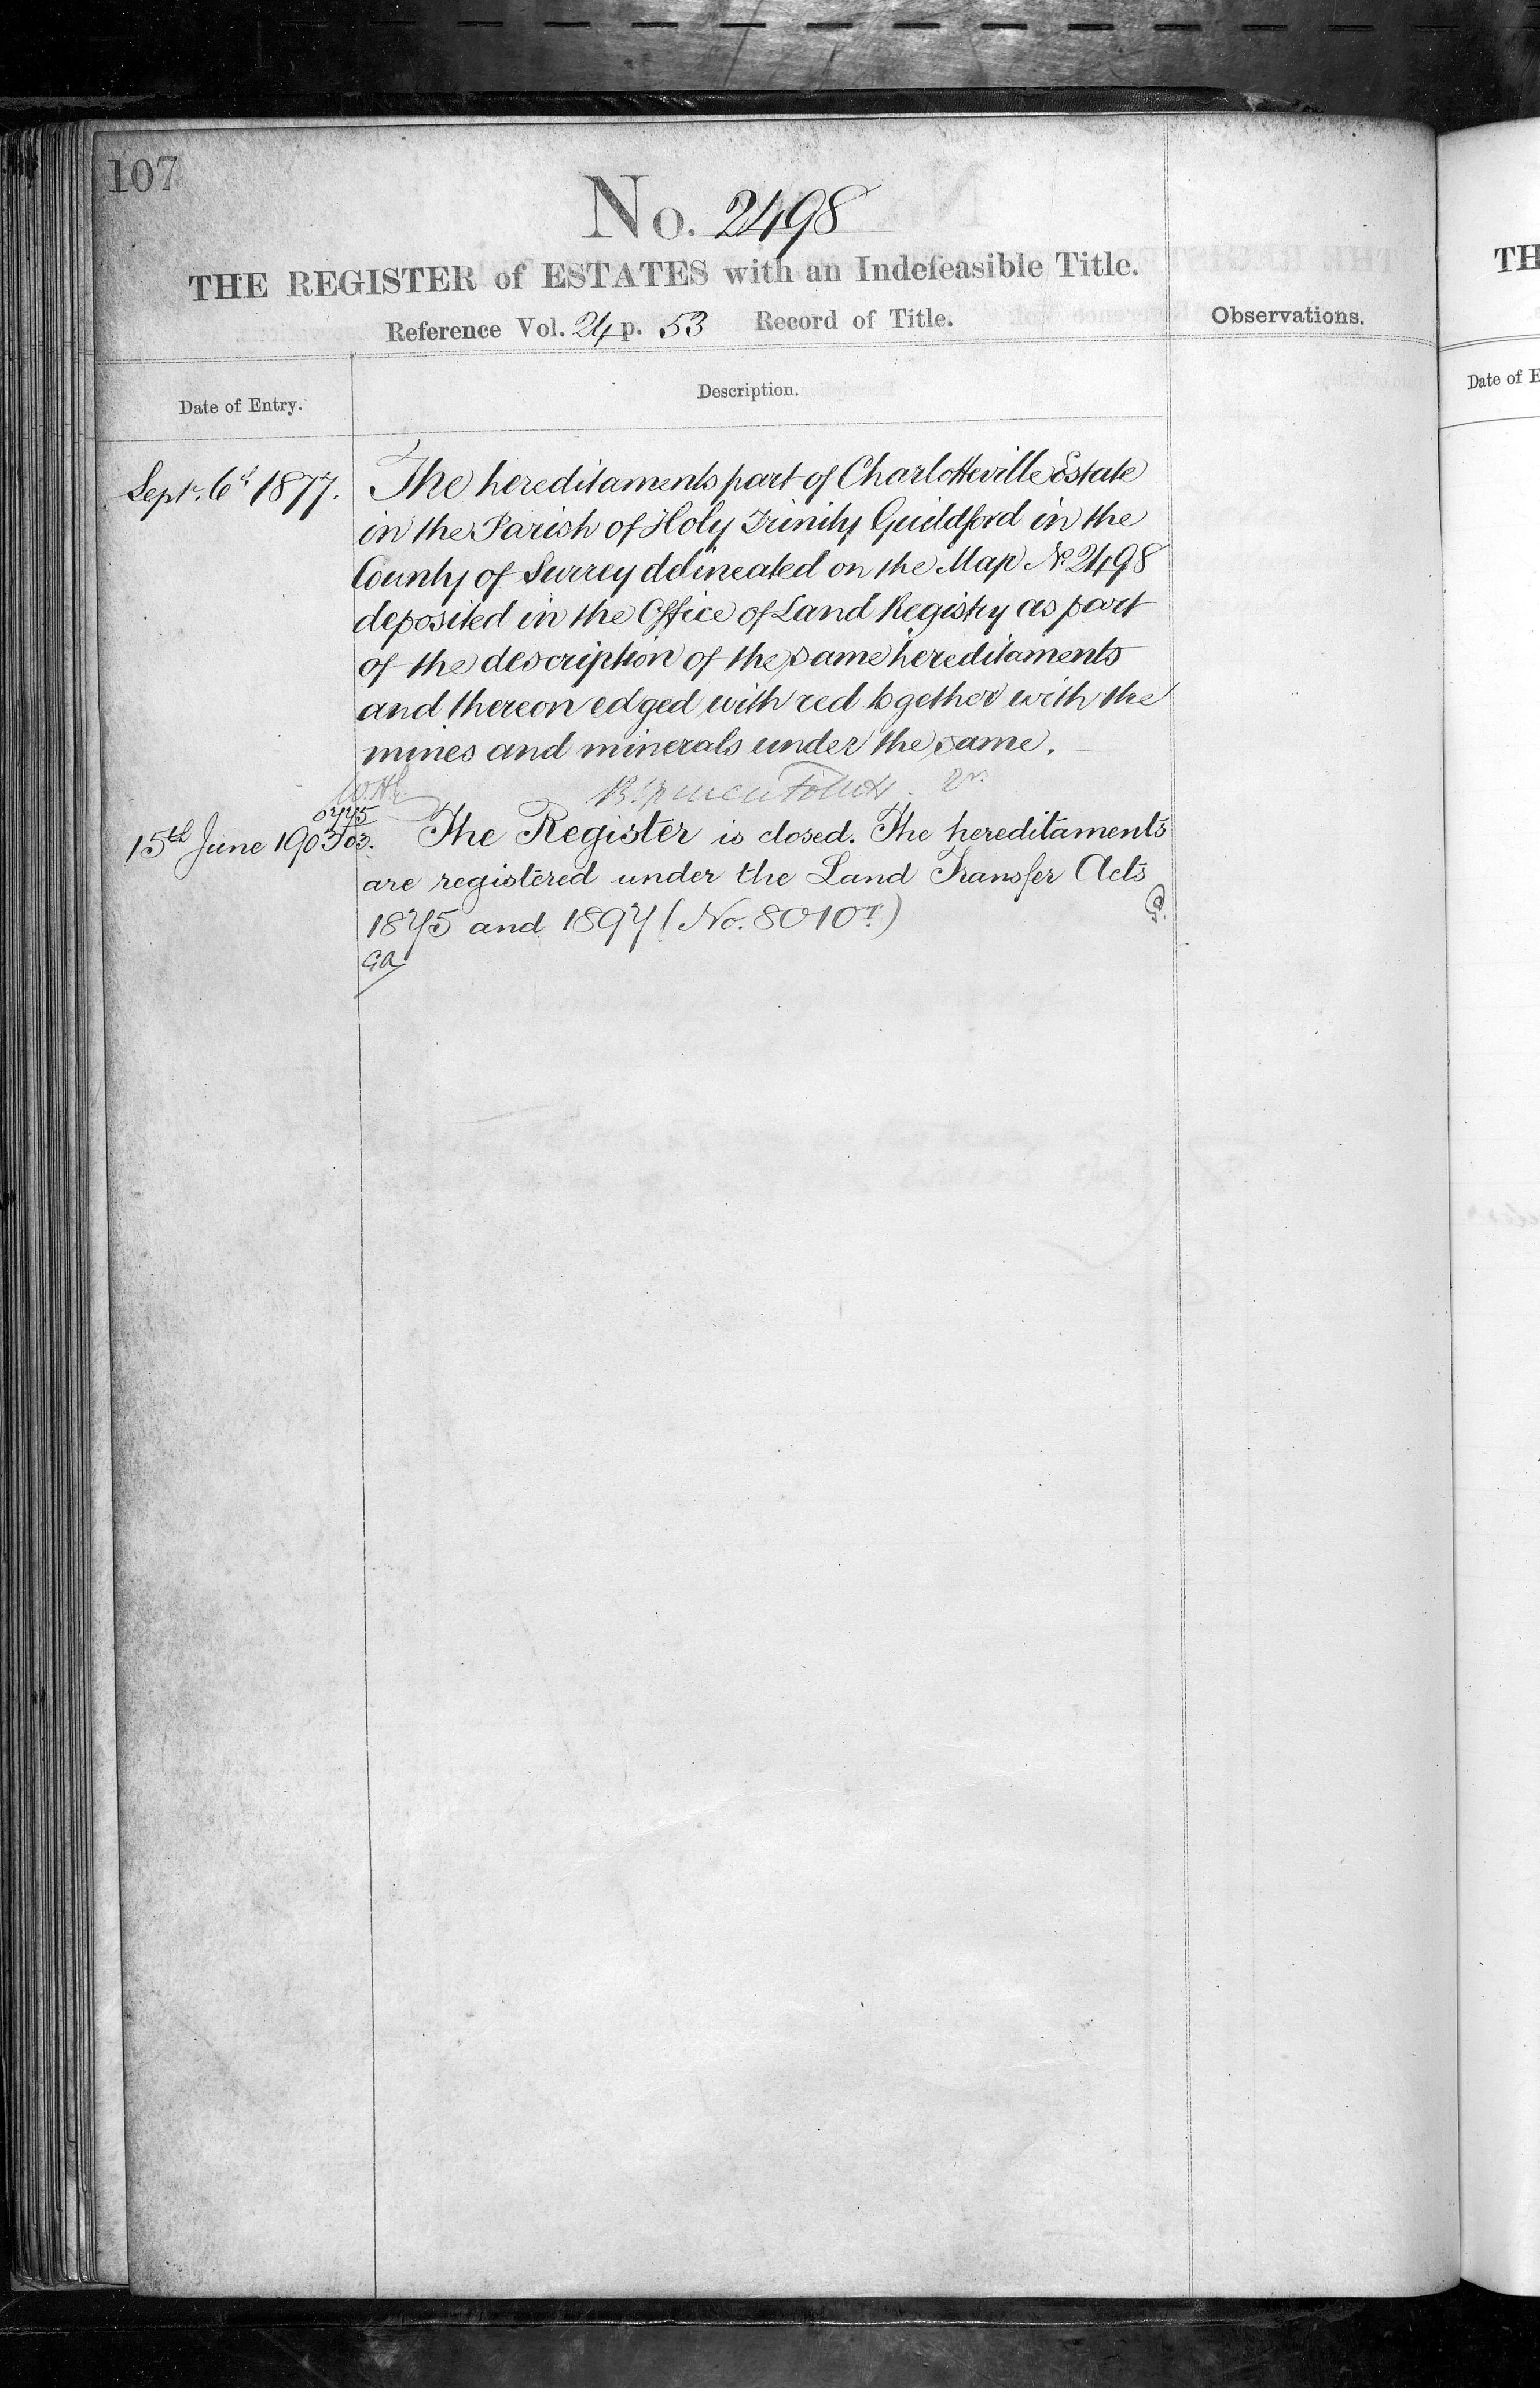 107
No. 2498
THE REGISTER of ESTATES with an Indefeasible Title.
Reference Vol. 24 p. 53 Record of Title.
Observations.
Date of Entry.
Description.
Sept. 6th 1877.
The hereditaments part of Charlotteville Estate
in the Parish of Holy Trinity Guildford in the
County of Surrey delineated on the Map No 2498
deposited in the Office of Land Registry as part
of the description of the same hereditaments
and thereon edged with red together with the
mines and minerals under the same.
15th June 1903
The Register is closed. The hereditaments
are registered under the Land Transfer Acts
1875 and 1897 (No. 8010
TH
Date of E